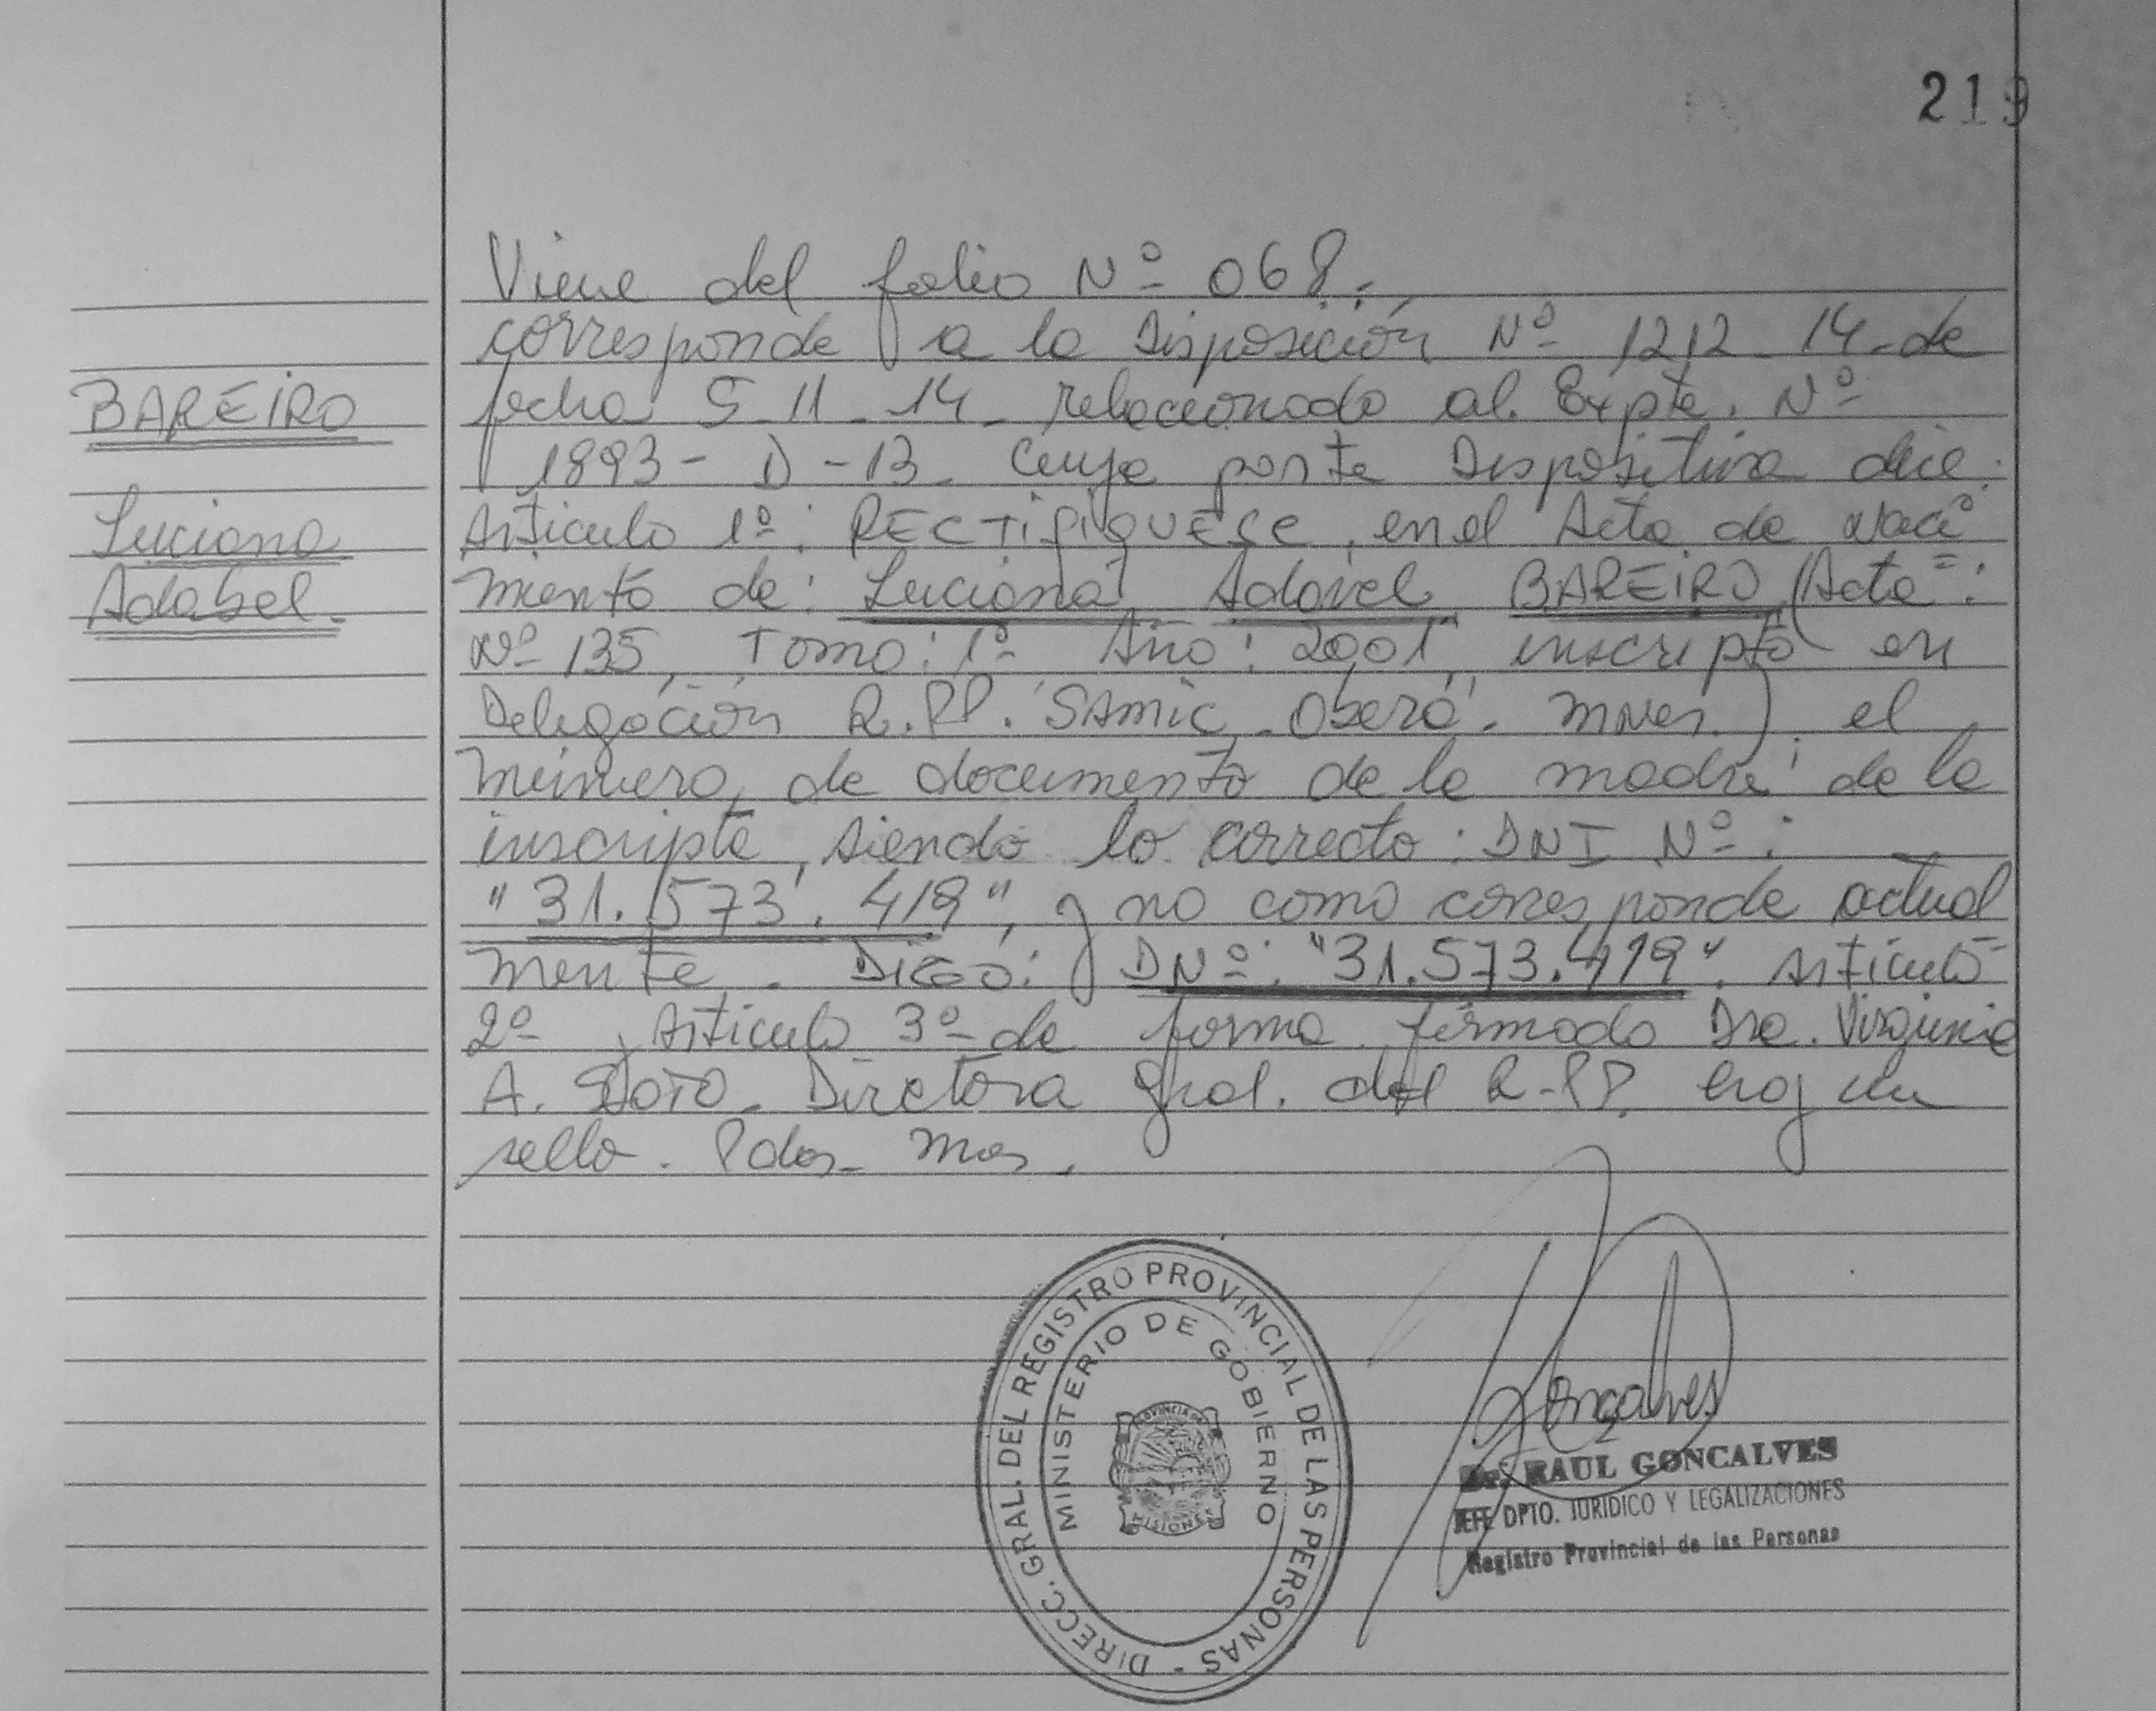 219
Viene del folio Nº 068.
corresponde a la Disposición Nº 1212-14-de
BAREIRO
fecha 5-11-14- relacionado al. Expte. Nº
1893- D -13- Cuya parte Dispositiva dice:
Luciana
Articulo 1º: RECTIFIQUESE, en el Acta de Naci
Adabel.
miento de: Luciana Adavel BAREIRO (Acta=:
Nº 135, Tomo: 1º Año: 2001, inscripto en
Delegación R.PP. SAMIC - Oberá - Mnes). el
número de documento de la madre de la
inscripta, siendo lo correcto: DNI Nº:
"31.573.419", y no como corresponde actual
mente. Digo: DNº: "31.573.419". Articulo-
2º y Articulo 3º de forma firmado Dra. Virginia
A. SOTO. Directora Gral. del R-PP. hay un
sello. Pdas- Mnes.
DIRECC. GRAL. DEL REGISTRO PROVINCIAL DE LAS PERSONAS -
MINISTERIO DE GOBIERNO
PROVINCIA DE
MISIONES
Goncalves
Dr. RAUL GONCALVES
JEFE DPTO. JURIDICO Y LEGALIZACIONES
Registro Provincial de las Personas